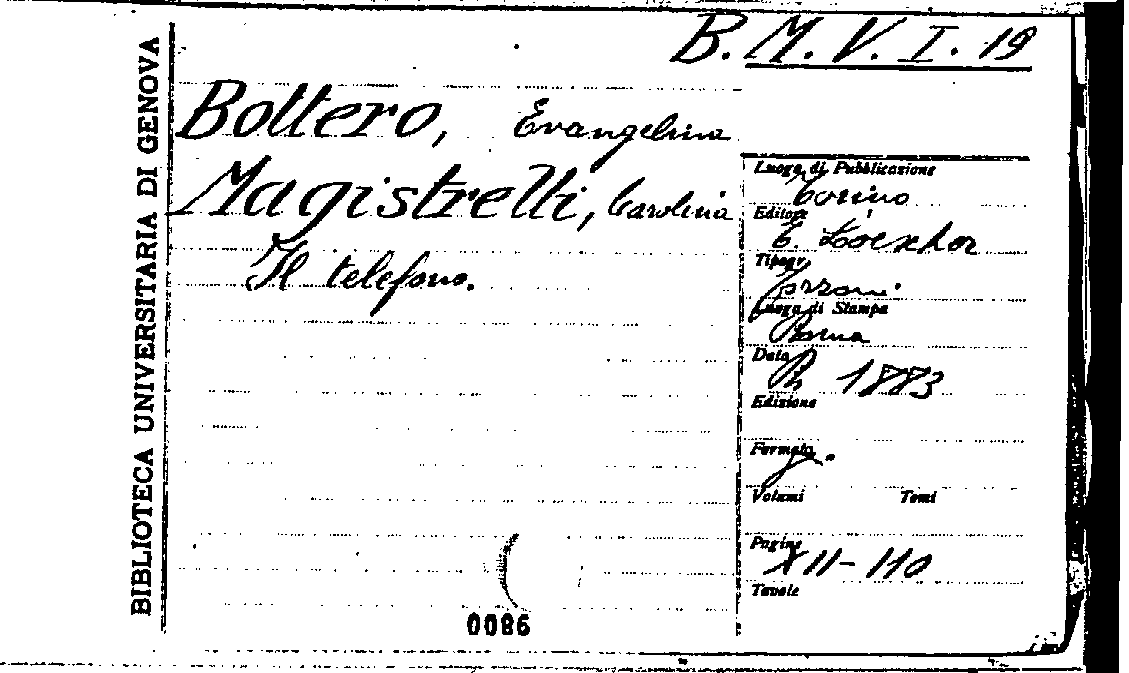 B. M. V. I. 19
BIBLIOTECA UNIVERSITARIA DI GENOVA
Bottero, Evangelina
Magistrelli, Carolina
Il telefono.
Luogo di Pubblicazione
Torino
Editore
E. Loescher
Tipogr.
Luogo di Stampa
Roma
Data
1883
Edizione
Formato
Volumi Tomi
Pagine
XII-110
Tavole
0086